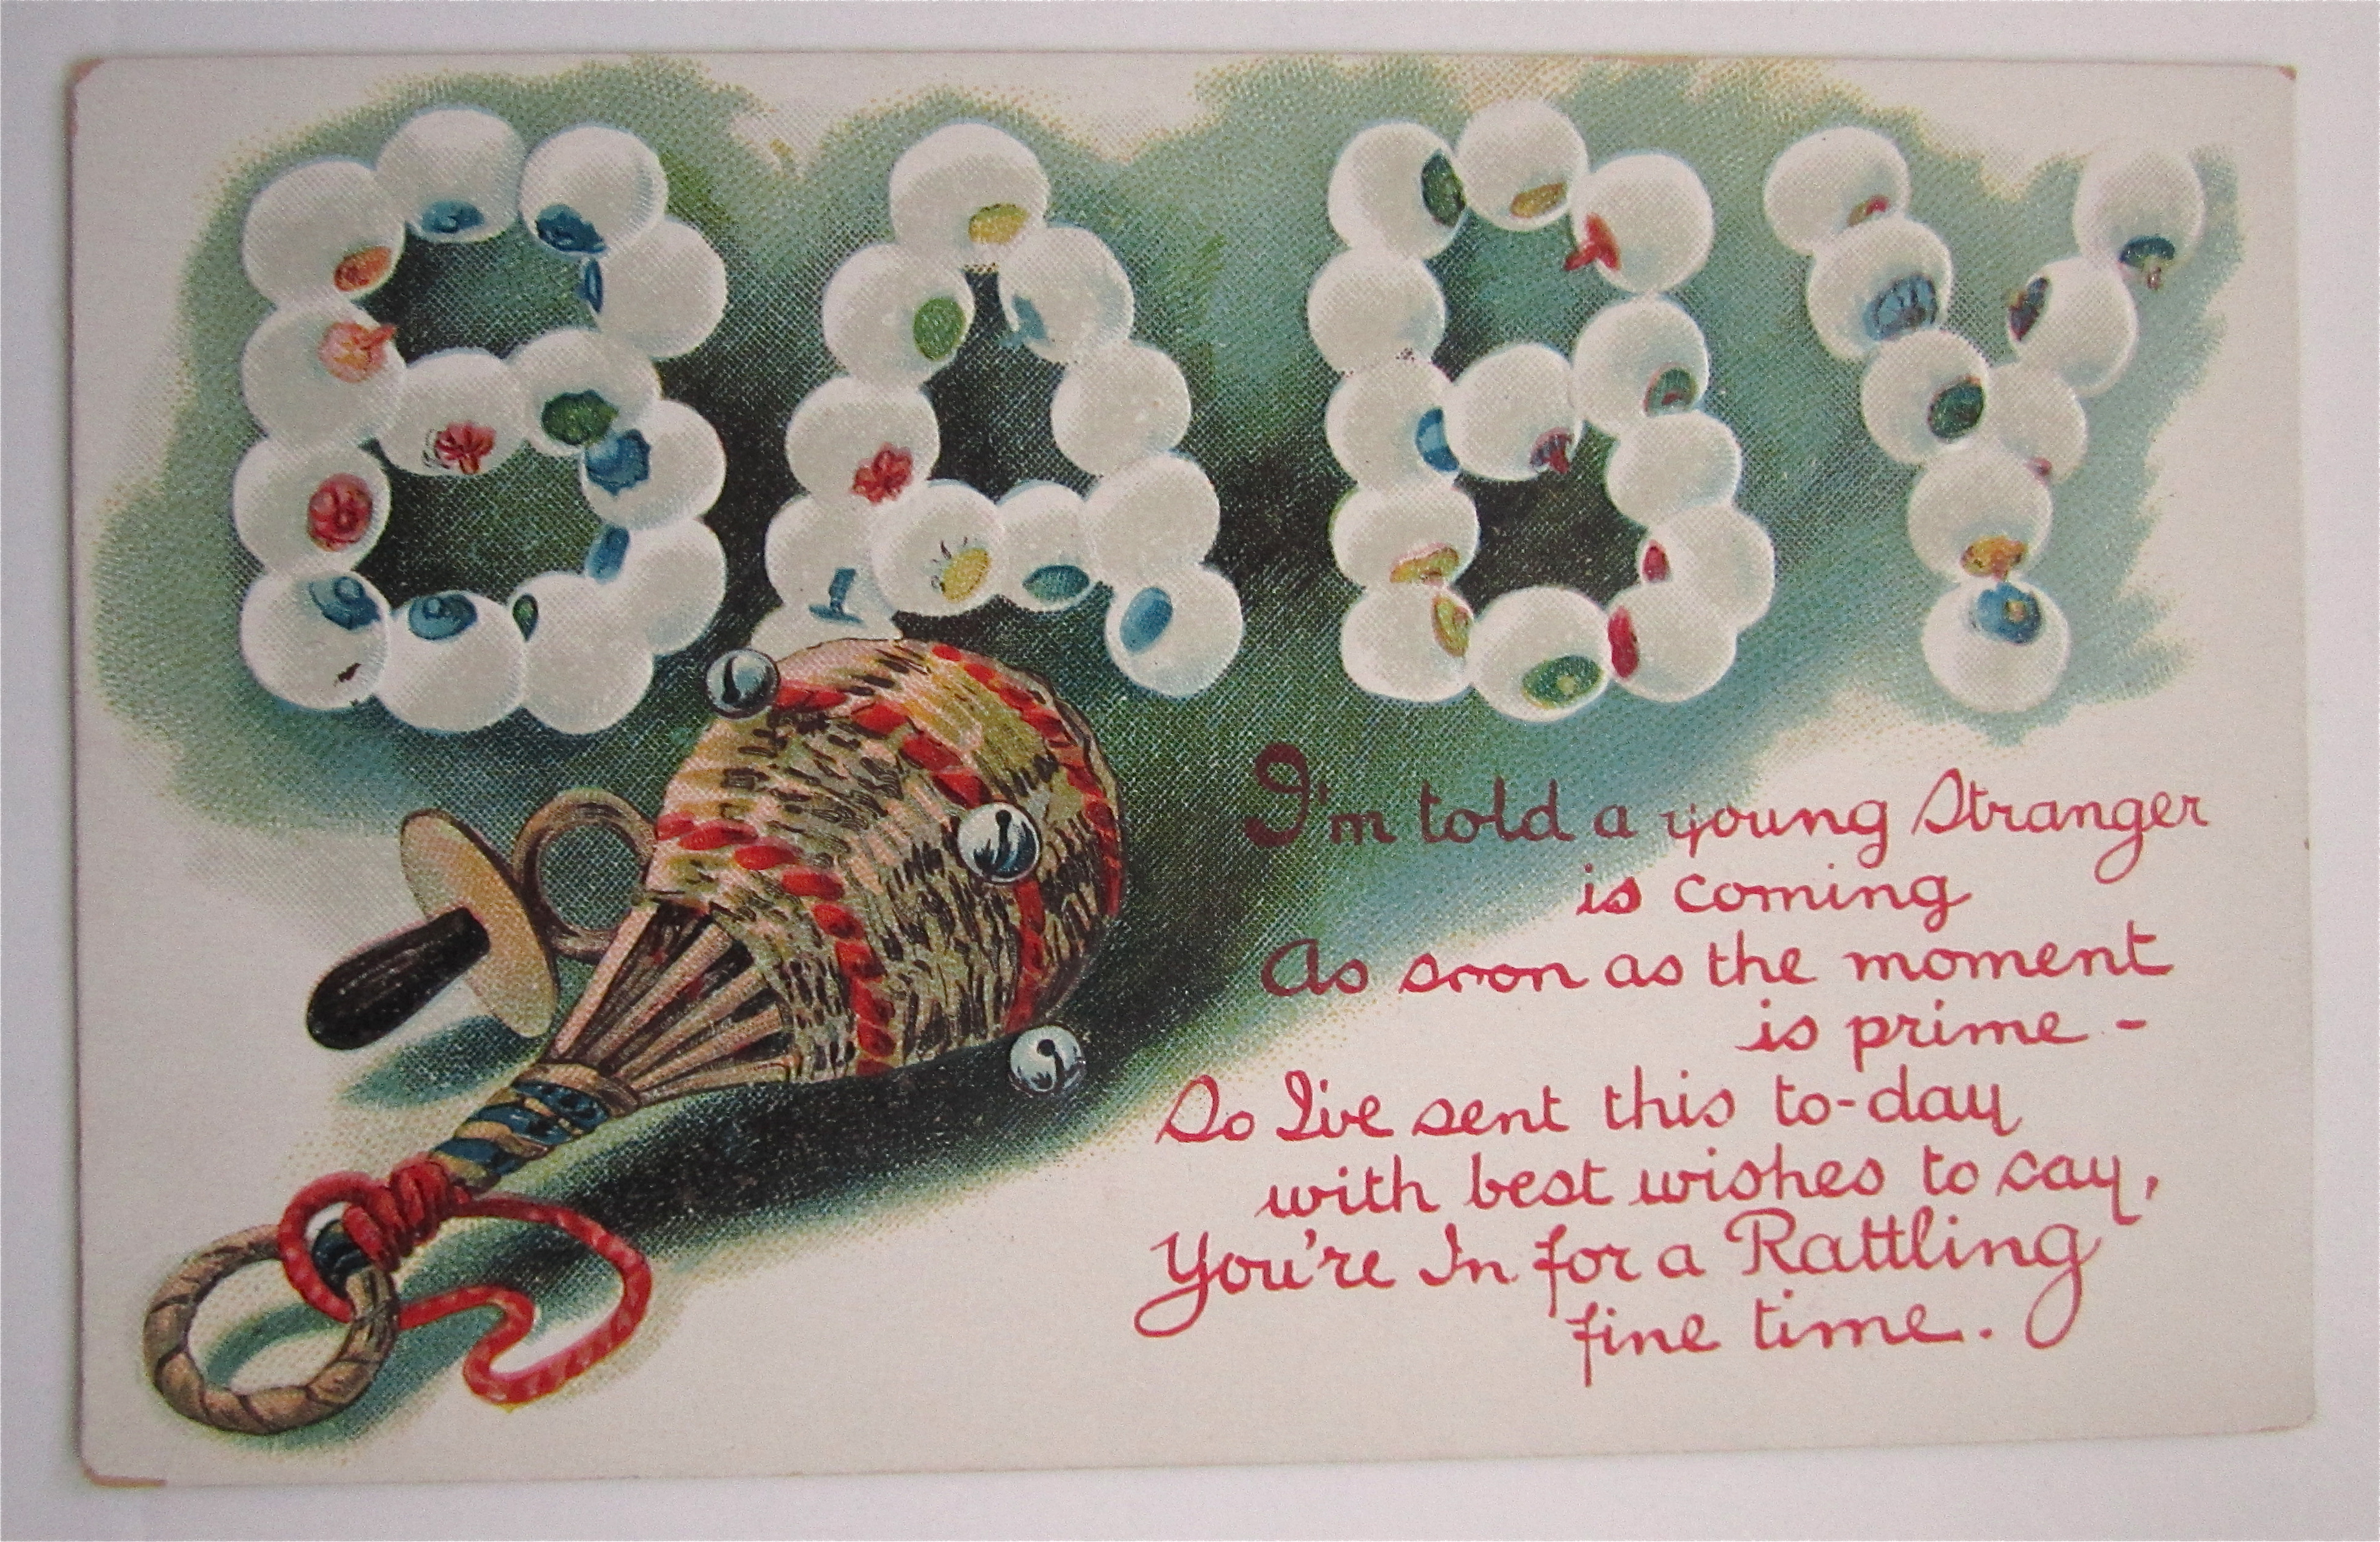 BABY
I'm told a young Stranger
is coming
As soon as the moment
is prime -
So I've sent this to-day
with best wishes to say,
You're In for a Rattling
fine time.